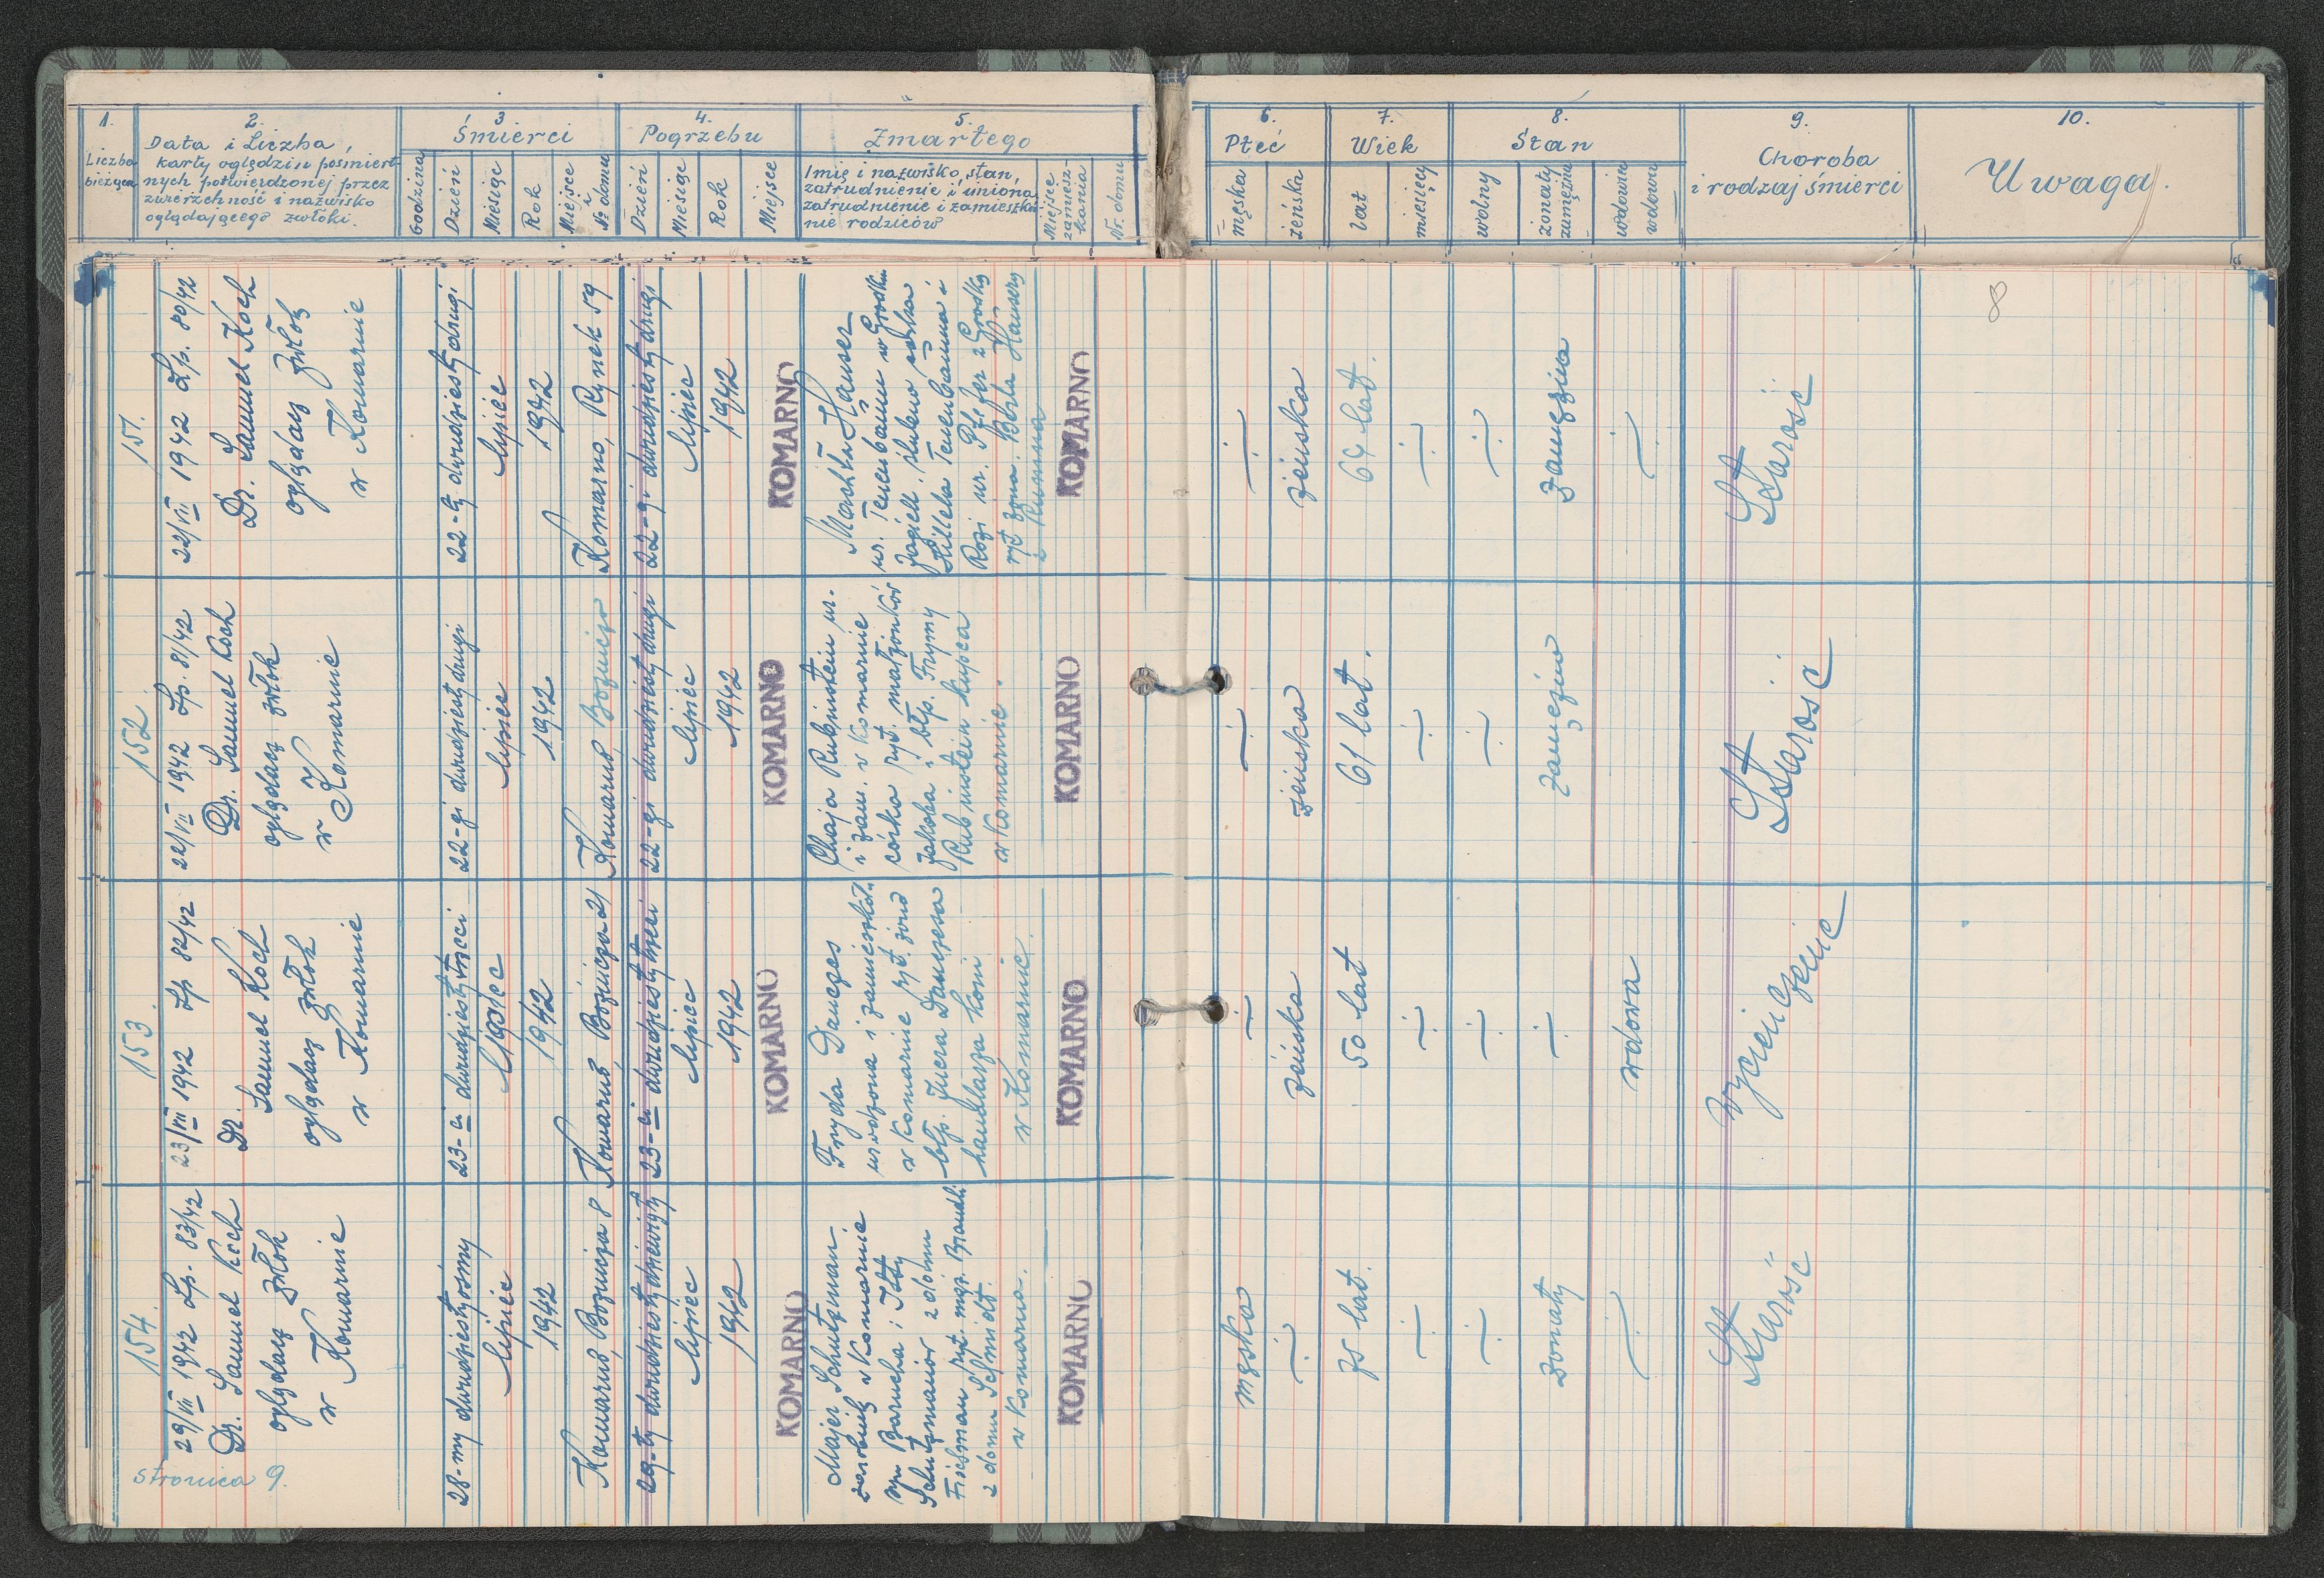 1.
Liczba
bieżąca
2.
Data i Liczba,
karty oględzin pośmiert-
nych potwierdzonej przez
zwierzchność i nazwisko
oglądającego zwłoki.
3
Śmierci
Godzina
Dzień
Miesiąc
Rok
Miejsce
i
№ domu
4.
Pogrzebu
Dzień
Miesiąc
Rok
Miejsce
5.
Zmarłego
Imię i nazwisko, stan,
zatrudnienie i imiona
zatrudnienie i zamieszka-
nie rodziców
Miejsce
zamiesz-
kania
Nr. domu
6.
Płeć
męska
żeńska
7.
Wiek
lat
miesięcy
8.
Stan
wolny
żonaty
zamężna
wdowiec
wdowa
9.
Choroba
i rodzaj śmierci
10.
Uwaga.
8
151.
22/VII 1942 Lp. 80/42
Dr. Samuel Koch
oglądacz zwłok
w Komarnie
22-gi dwudziesty drugi
lipiec
1942
Komarno, Rynek 59
22-gi dwudziesty drugi
lipiec
1942
KOMARNO
Hauser
ur. Tenenbaum w Gródku
Jagiell. ślubna córka
Hillela Tenenbauma i
Rozi ur. z Gródka
ryt żona. Berla Hausera
z Rumna
KOMARNO
żeńska
64 lat.
zamężna
Starość
152.
22/VII 1942 Lp. 81/42
Dr. Samuel Koch
oglądacz zwłok
w Komarnie
22-gi dwudziesty drugi
lipiec
1942
Komarno, Bożnicza
22-gi dwudziesty drugi
lipiec
1942
KOMARNO
Chaja Rubinstein ur.
i zam. w Komarnie
córka ryt. małżonków
Jakoba i błp. Frymy
Rubinstein kupca
w Komarnie.
KOMARNO
żeńska
61 lat.
zamężna
Starość
153.
23/VII 1942 Lp 82/42
Dr. Samuel Koch
oglądacz zwłok
w Komarnie
23-ci dwudziesty trzeci
lipiec
1942
Komarno, Bożnicza 21
23-ci dwudziesty trzeci
lipiec
1942
KOMARNO
Fryda Danczes
urodzona i zamieszkała
w Komarnie ryt. żona
błp. Danczesa
handlarza koni
w Komarnie.
KOMARNO
żeńska
50 lat
wdowa
Wycieńczenie
154.
29/VII 1942 Lp. 83/42
Dr. Samuel Koch
oglądacz zwłok
w Komarnie
28-my dwudziesty ósmy
lipiec
1942
Komarno, Bożnicza 8
29-ty dwudziesty dziewiąty
lipiec
1942
KOMARNO
Majer Schutzman
zarobnik w Komarnie
syn Barucha i Itty
Schutzmanów z domu
Fischman ryt. mąż. Brandli
z domu Schmidt.
w Komarno.
KOMARNO
męska
75 lat.
żonaty
Starość
stronica 9.